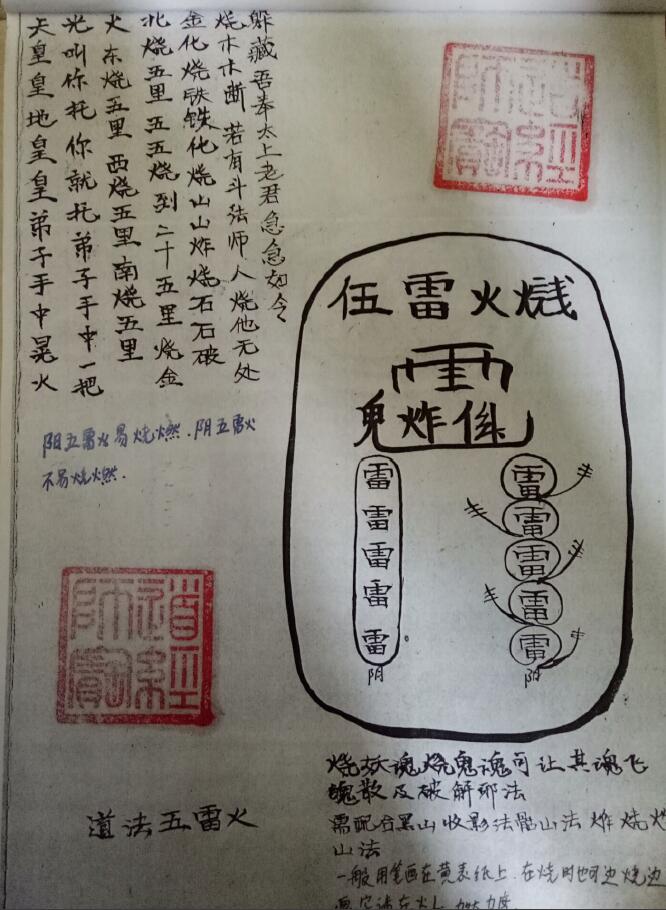 天皇皇地皇皇弟子手中晃火
光叫你托你就托弟子手中一把
火东烧五里西烧五里南烧五里
北烧五里五五烧到二十五里烧金
金化烧铁铁化烧山山炸烧石石破
烧木木断若有斗法师人烧他无处
躲藏吾奉太上老君急急如令
道經師寶
伍雷火
鬼炸係
雷雷雷雷雷
阴
雷雷雷雷雷
阳
阳五雷火易烧燃.阴五雷火
不易烧燃.
道經師寶
道法五雷火
烧妖魂烧鬼魂可让其魂飞
魄散及破解邪法
需配合黑山收影法 山法 炸烧火
山法
一般用笔画在黄表纸上.在烧时也可边烧边